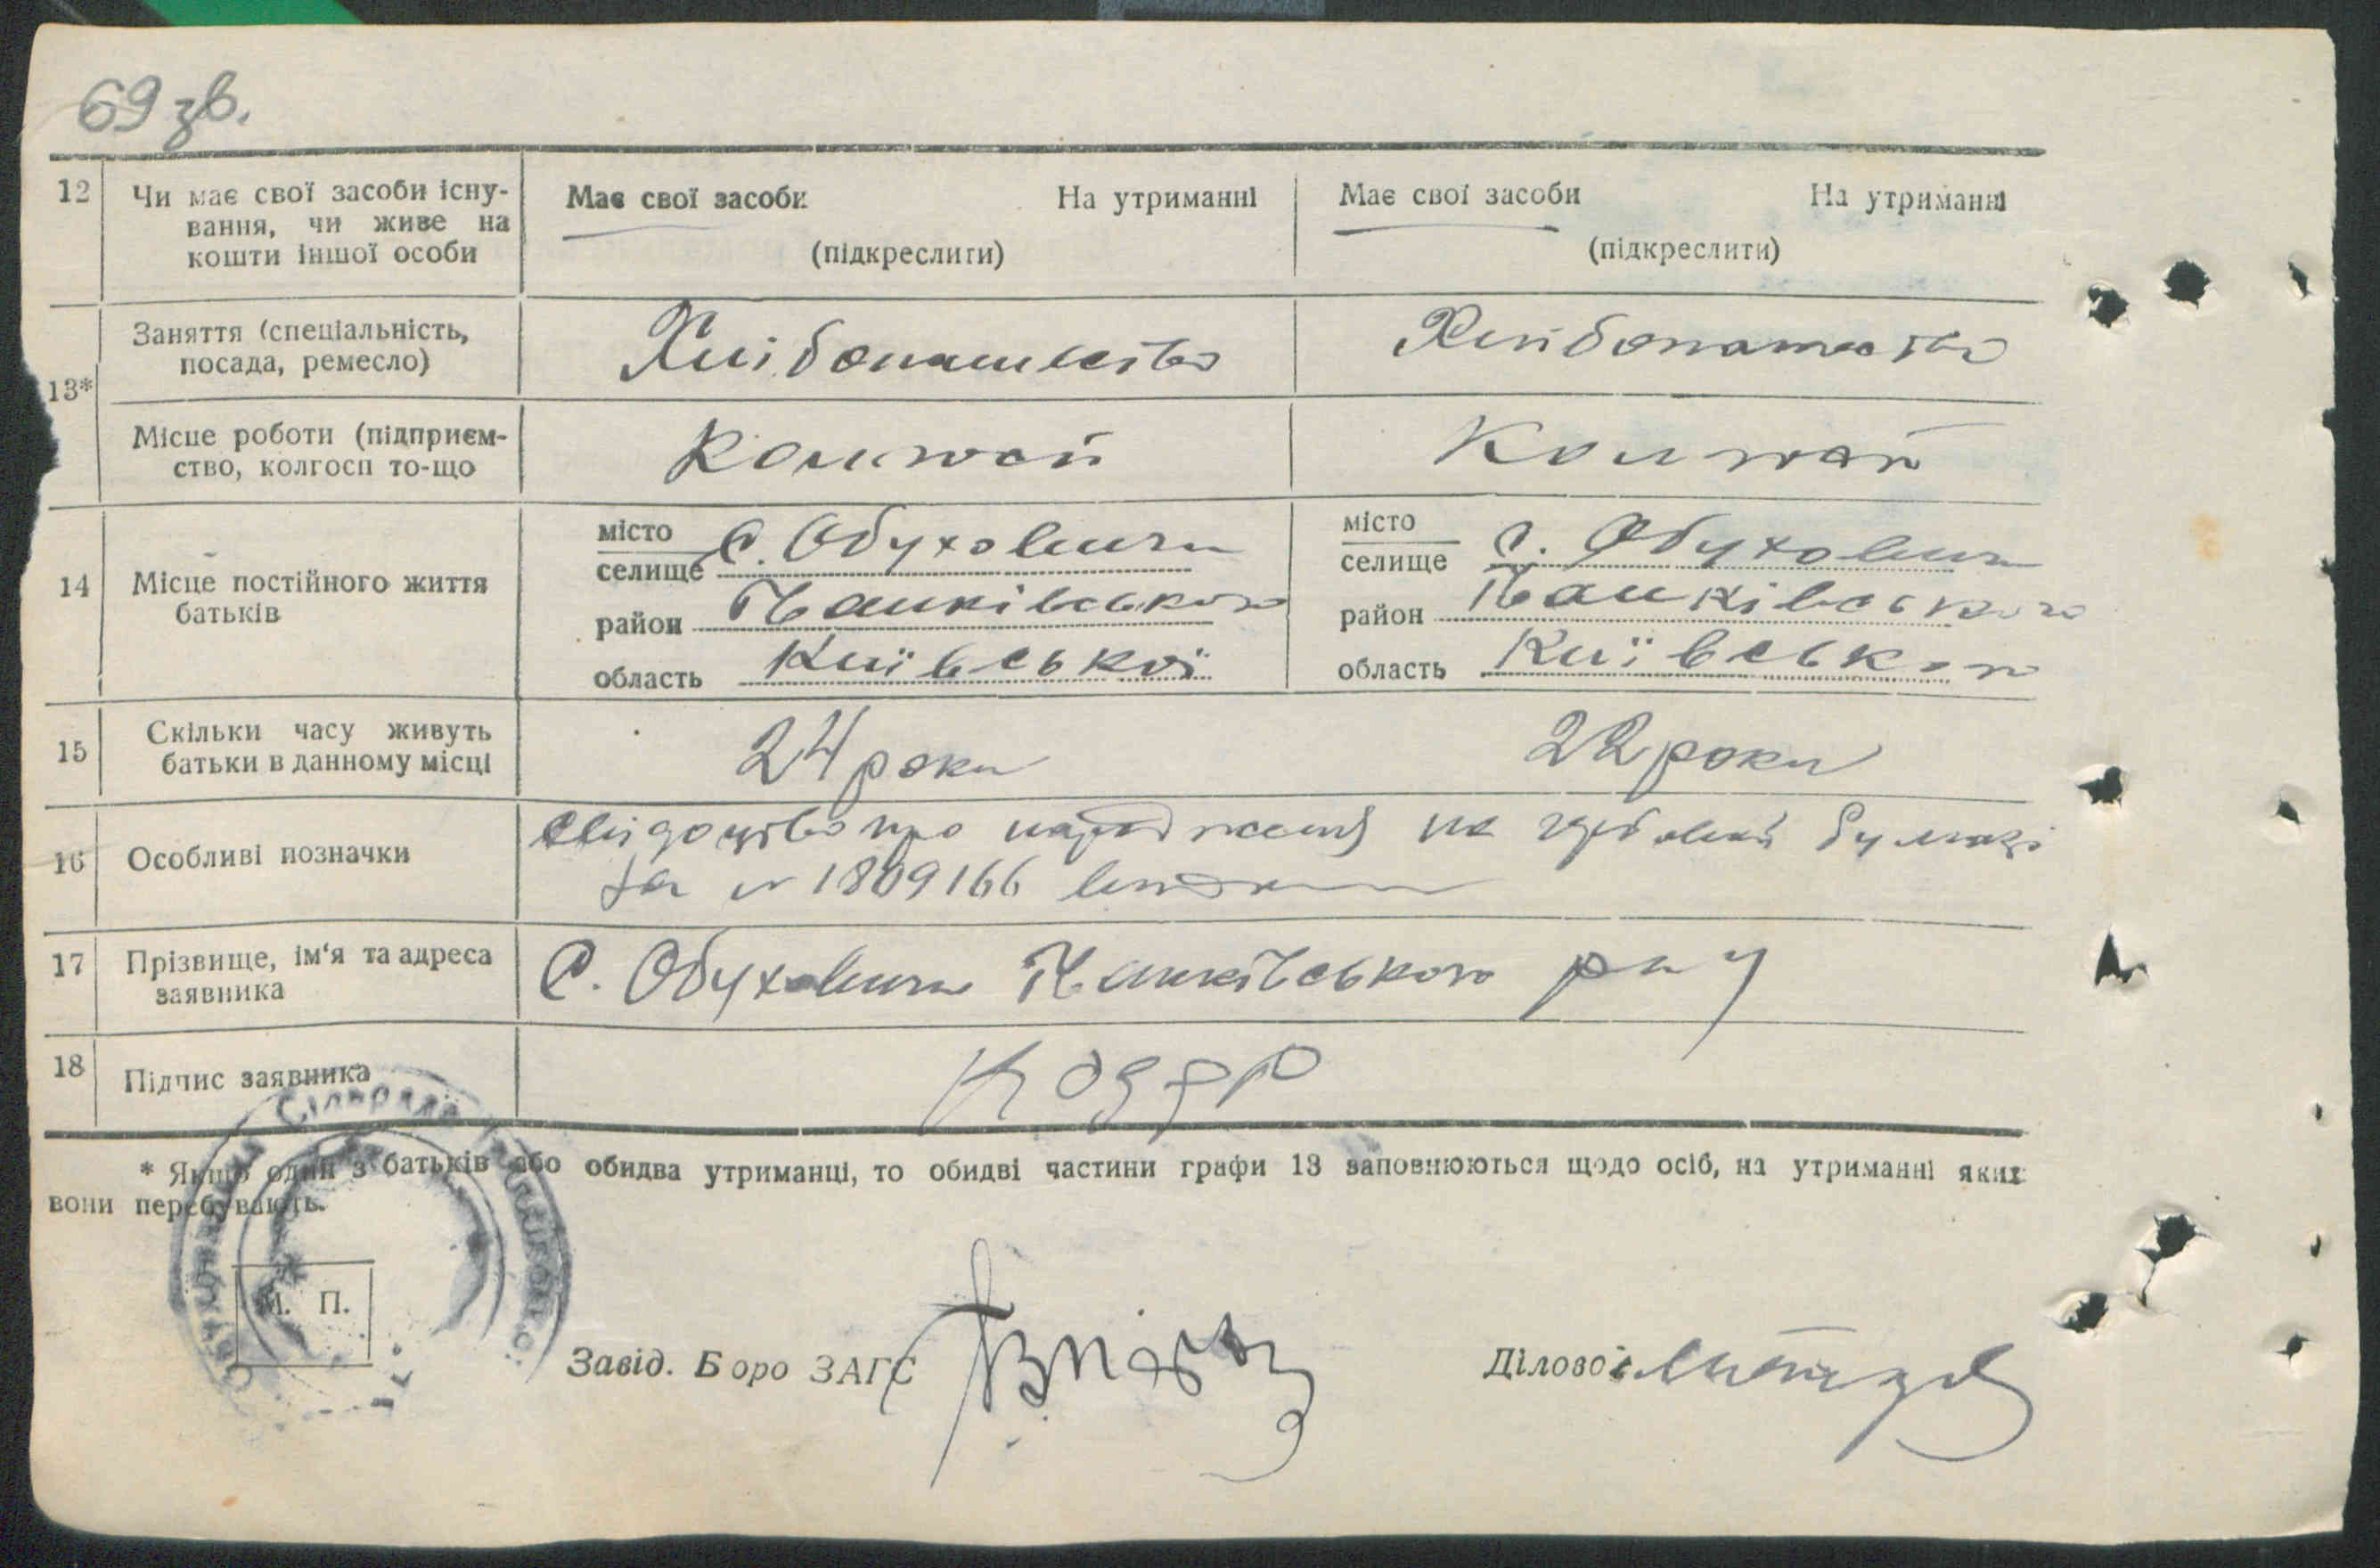 69 зв.
12 Чи має свої засоби існу- Має свої засоби На утриманні Має свої засоби На утриманні
вання, чи живе на
кошти іншої особи (підкреслити) (підкреслити)
13* Заняття (спеціальність, Хлібопашество Хлібопашество
посада, ремесло)
Місце роботи (підприєм-
ство, колгосп то-що
14 Місце постійного життя місто с. Обуховичи місто с. Обуховичи
батьків селище селище
район Іванківського район Іванківського
область Київської область Київської
15 Скільки часу живуть 24 роки 22 роки
батьки в данному місці
16 Особливі позначки свидоцтво про народження на гербовій бумазі
за № 1809166
17 Прізвище, ім'я та адреса С. Обуховичи Іванківського р-ну
заявника
18 Підпис заявника
* Якщо один з батьків або обидва утриманці, то обидві частини графи 13 заповнюються щодо осіб, на утриманні яких
вони перебувають.
М. П.
Завід. Бюро ЗАГС Діловод